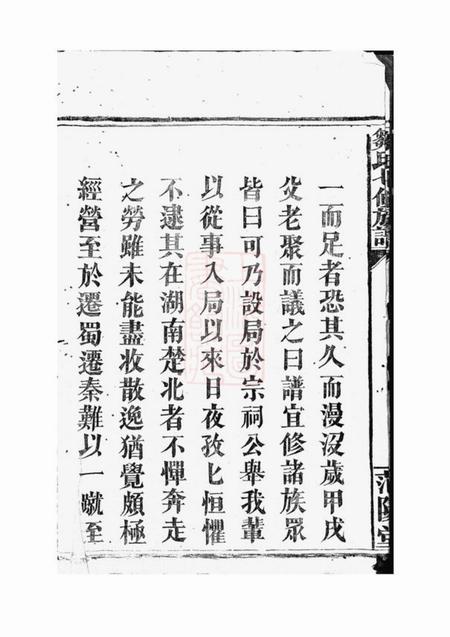 鄒氏七修族譜
范陽堂
一二而足者恐其久而漫沒歲甲戌
父老聚而議之曰譜宜修諸族眾
皆曰可乃設局於宗祠公舉我輩
以從事入局以來日夜孜匕恒懼
不逮其在湖南楚北者不憚奔走
之勞雖未能盡收散逸猶覺頗極
經營至於遷蜀遷秦難以一蹴至